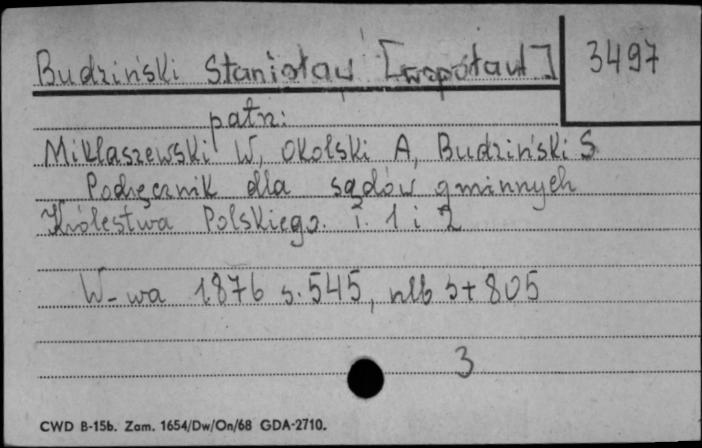 Budziński Stanisław [współaut]
3497
patrz:
Miklaszewski W, Okolski A, Budziński S
Podręcznik dla sądów gminnych
Królestwa Polskiego. T. 1 i 2
W-wa 1876 s. 545, nlb 5 + 805
3
CWD B-15b. Zam. 1654/Dw/On/68 GDA-2710.